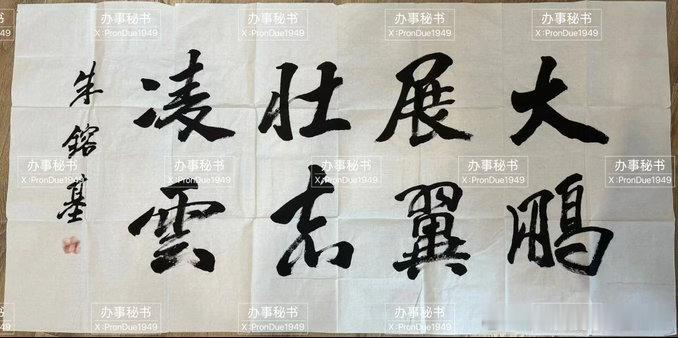 大鵬
展翼
壮志
凌雲
朱鎔基
办事秘书
X :PronDue1949
办事秘书
X :PronDue1949
办事秘书
X :PronDue1949
办事秘书
X :PronDue1949
办事秘书
X :PronDue1949
办事秘书
X :PronDue1949
办事秘书
X :PronDue1949
办事秘书
X :PronDue1949
办事秘书
X :PronDue1949
办事秘书
X :PronDue1949
办事秘书
X :PronDue1949
办事秘书
X :PronDue1949